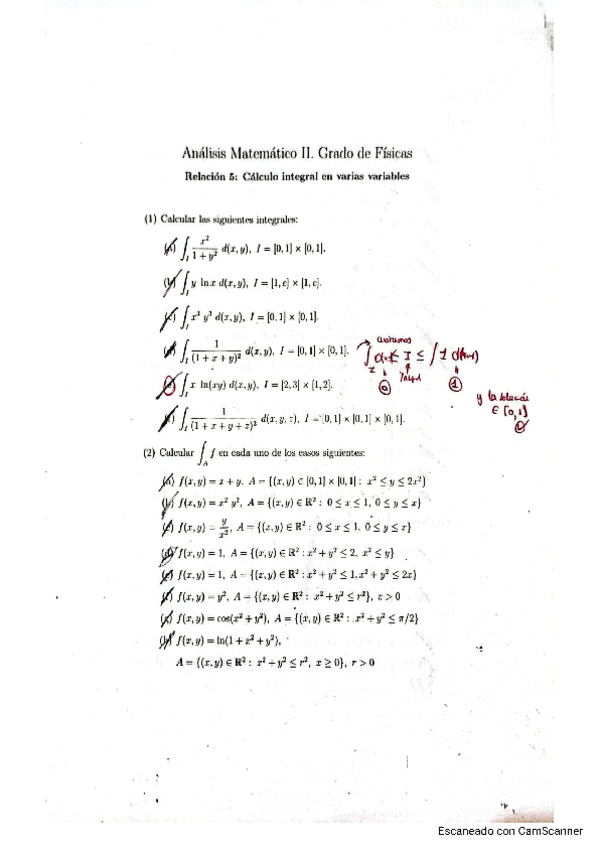 Análisis Matemático II. Grado de Físicas
Relación 5: Cálculo integral en varias variables
(1) Calcular las siguientes integrales:
(a) ∫_I x²/(1+y²) d(x,y), I = [0,1] × [0,1].
(b) ∫_I y ln x d(x,y), I = [1,e] × [1,e].
(c) ∫_I x³ y³ d(x,y), I = [0,1] × [0,1].
(d) ∫_I 1/(1+x+y)² d(x,y), I = [0,1] × [0,1].
(e) ∫_I x ln(xy) d(x,y), I = [2,3] × [1,2].
(f) ∫_I 1/(1+x+y+z)³ d(x,y,z), I = [0,1] × [0,1] × [0,1].
acotamos
≤ I ≤ ∫ 1
0
1
∈ [0,1]
(2) Calcular ∫_A f en cada uno de los casos siguientes:
(a) f(x,y) = x + y, A = {(x,y) ∈ [0,1] × [0,1] : x² ≤ y ≤ 2x²}
(b) f(x,y) = x² y², A = {(x,y) ∈ ℝ² : 0 ≤ x ≤ 1, 0 ≤ y ≤ x}
(c) f(x,y) = y/x², A = {(x,y) ∈ ℝ² : 0 ≤ x ≤ 1, 0 ≤ y ≤ x}
(d) f(x,y) = 1, A = {(x,y) ∈ ℝ² : x² + y² ≤ 2, x² ≤ y}
(e) f(x,y) = 1, A = {(x,y) ∈ ℝ² : x² + y² ≤ 1, x² + y² ≤ 2x}
(f) f(x,y) = y², A = {(x,y) ∈ ℝ² : x² + y² ≤ r²}, r > 0
(g) f(x,y) = cos(x² + y²), A = {(x,y) ∈ ℝ² : x² + y² ≤ π/2}
(h) f(x,y) = ln(1 + x² + y²),
A = {(x,y) ∈ ℝ² : x² + y² ≤ r², x ≥ 0}, r > 0
Escaneado con CamScanner